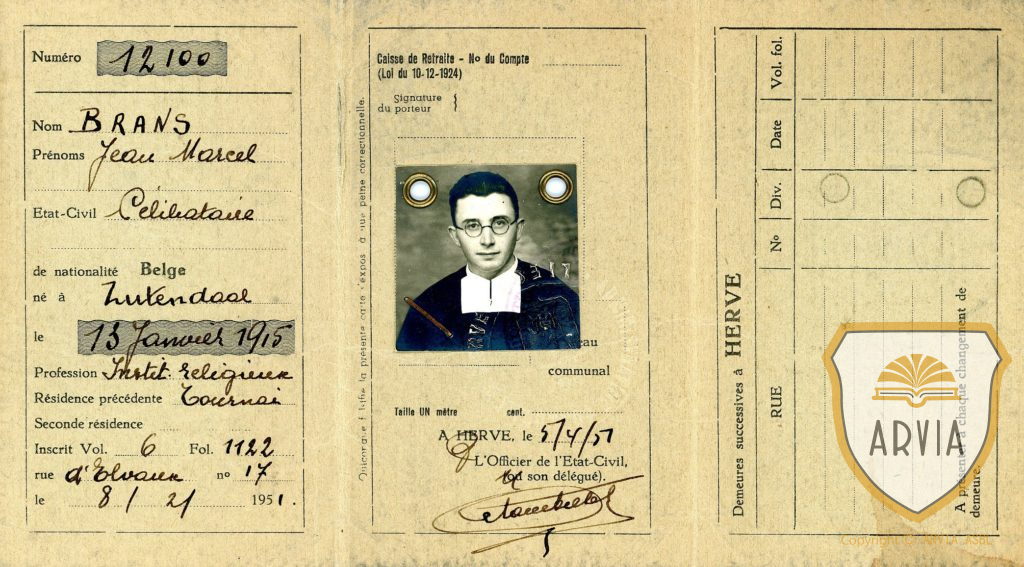 Numéro 12100
Nom BRANS
Prénoms Jean Marcel
Etat-Civil Célibataire
de nationalité Belge
né à Zutendaal
le 13 Janvier 1915
Profession Instit religieux
Résidence précédente Tournai
Seconde résidence
Inscrit Vol. 6 Fol. 1122
rue d'Elvaux no 17
le 8/2/ 1951.
Quiconque
la présente carte s'expose à une peine correctionnelle.
Caisse de Retraite - No du Compte
(Loi du 10-12-1924)
Signature
du porteur
eau
communal
Taille UN mètre cent.
A HERVE, le 5/4/51
L'Officier de l'Etat-Civil,
(ou son délégué).
Demeures successives à HERVE
RUE
No
Div.
Date
Vol. fol.
A présenter à chaque changement de
demeure.
ARVIA